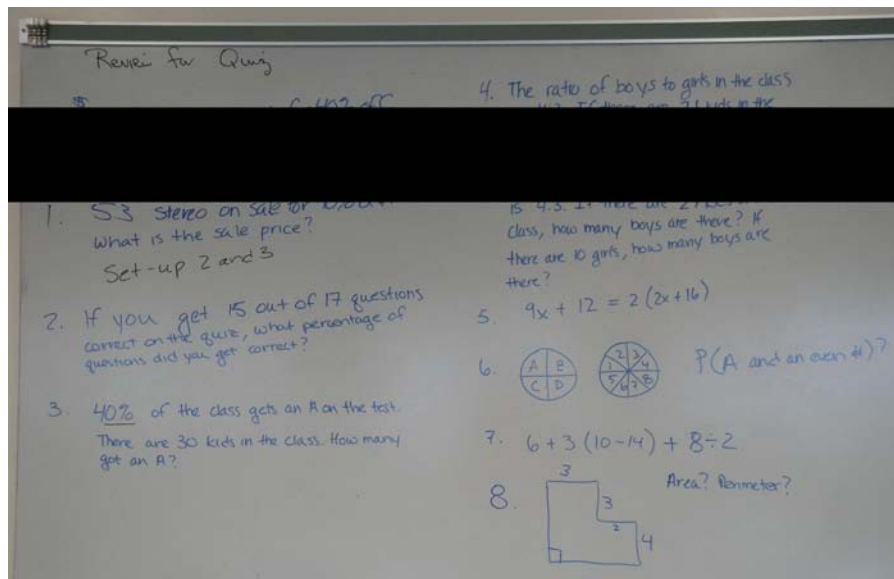 Review for Quiz
$
off
1. 53 stereo on sale for
what is the sale price?
Set-up 2 and 3
2. If you get 15 out of 17 questions
correct on the quiz, what percentage of
questions did you get correct?
3. 40% of the class gets an A on the test.
There are 30 kids in the class. How many
got an A?
4. The ratio of boys to girls in the class
is 4:3. If there are 21
class, how many boys are there? If
there are 10 girls, how many boys are
there?
5. 9x + 12 = 2(2x+16)
6. A B C D 1 2 3 4 5 6 7 8 P(A and an even #)?
7. 6 + 3 (10-14) + 8÷2
8. 3 3 2 4 Area? Perimeter?